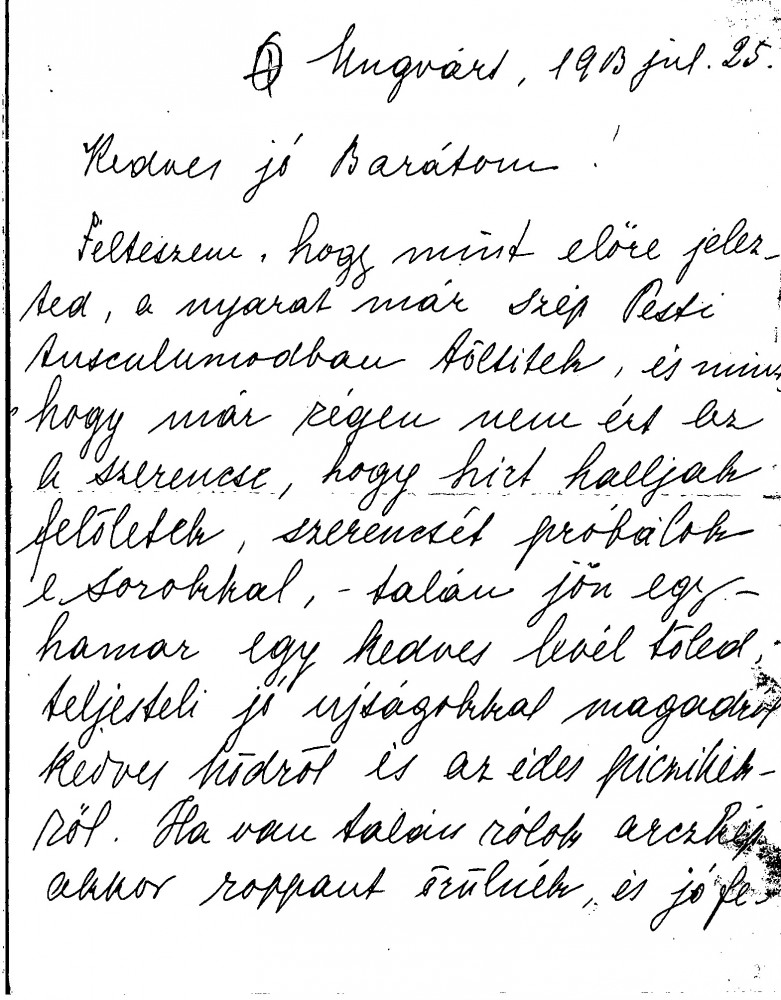 ① Ungvárt, 1913 jul. 25.
Kedves jó Barátom!
Felteszem, hogy mint előre jelez-
ted, a nyarat már szép Pesti
tusculumodban töltitek, és mint
hogy már régen nem ért az
a szerencse, hogy hirt halljak
felőletek, szerencsét próbálok
e sorokkal, - talán jön egy-
hamar egy kedves levél tőled,
teljesteli jó ujságokkal magadról
kedves nődről és az édes piczikék-
ről. Ha van talán rólok arczkép
akkor roppant örülnék, és jó fe-